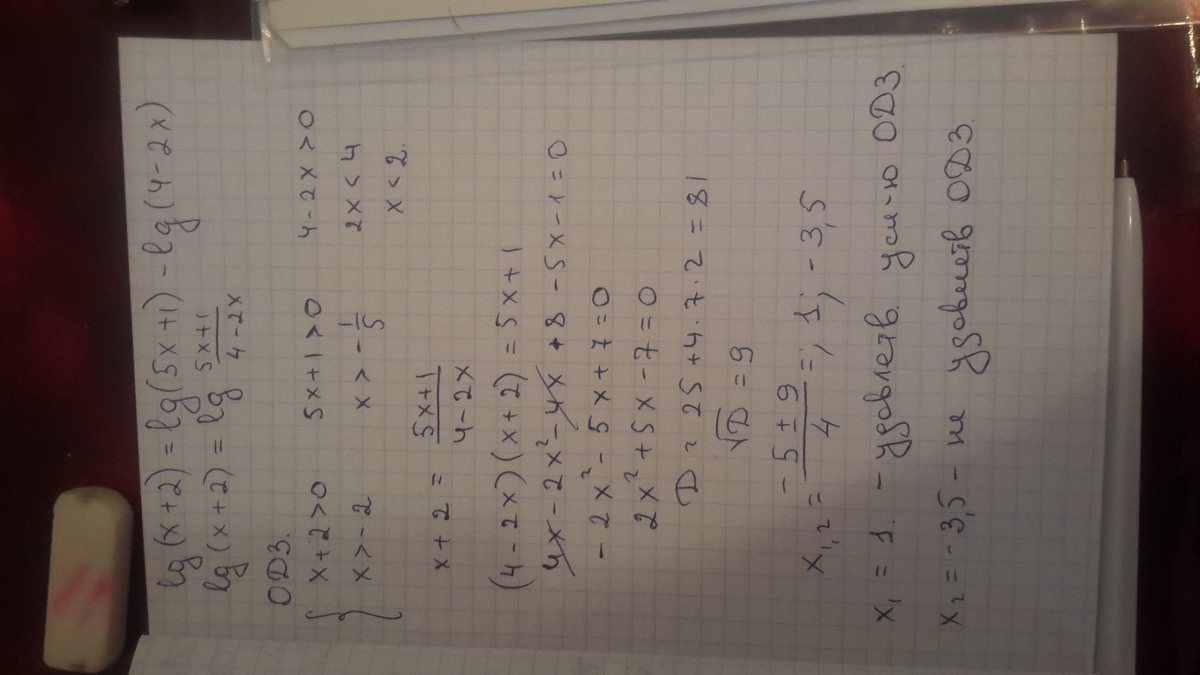 lg(x+2) = lg(5x+1) - lg(4-2x)
lg(x+2) = lg (5x+1)/(4-2x)
ОДЗ.
{ x+2>0 5x+1>0 4-2x>0
x>-2 x>-1/5 2x<4
x<2.
x+2 = (5x+1)/(4-2x)
(4-2x)(x+2) = 5x+1
4x - 2x² - 4x + 8 - 5x - 1 = 0
-2x² - 5x + 7 = 0
2x² + 5x - 7 = 0
D = 25 + 4·7·2 = 81
√D = 9
x₁,₂ = (-5 ± 9)/4 =; 1; -3,5
x₁ = 1. - удовлетв. усл-ю ОДЗ.
x₂ = -3,5 - не удовлетв ОДЗ.